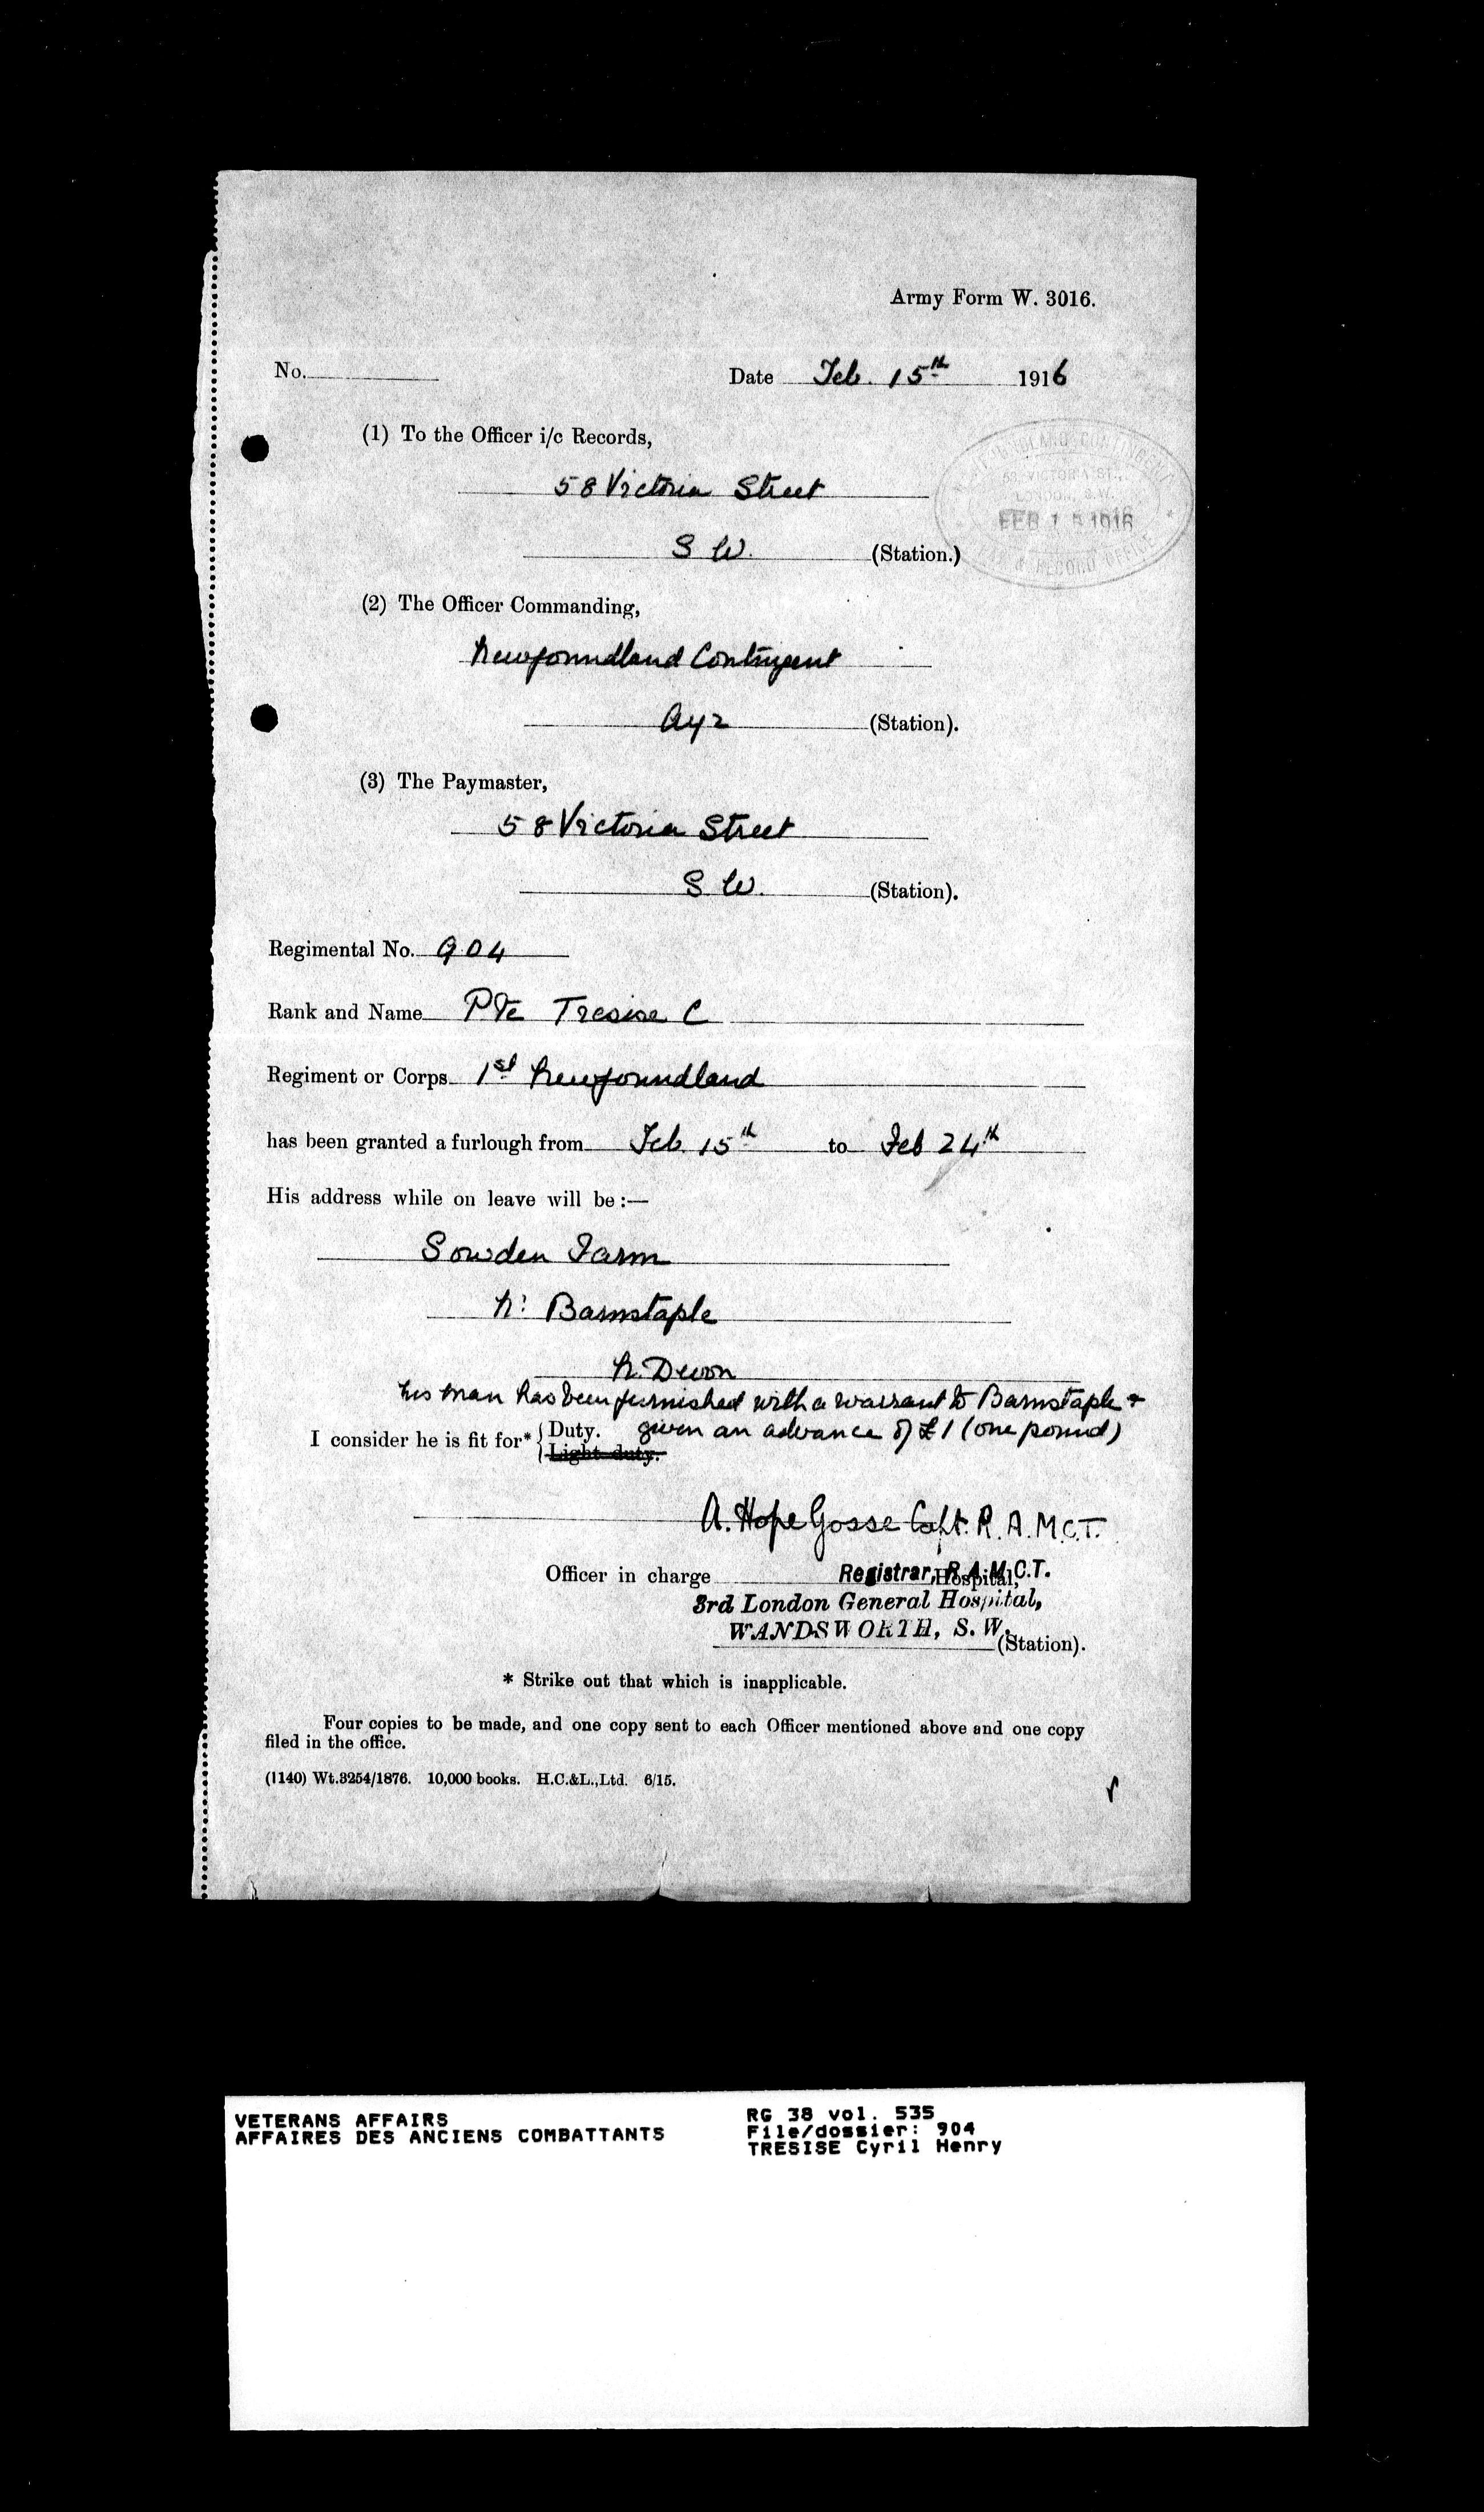 Army Form W. 3016.
No. Date Feb. 15th 1916
(1) To the Officer i/c Records,
58 Victoria Street
S W. (Station.)
NEWFOUNDLAND CONTINGENT
58 VICTORIA ST.,
LONDON, S.W.
FEB 15 1916
& RECORD OFFICE
(2) The Officer Commanding,
Newfoundland Contingent
Ayr (Station).
(3) The Paymaster,
58 Victoria Street
S W. (Station).
Regimental No. 904
Rank and Name Pte Tresise C
Regiment or Corps 1st Newfoundland
has been granted a furlough from Feb. 15th to Feb 24th
His address while on leave will be :—
Sowden Farm
Nr Barnstaple
N. Devon
This man has been furnished with a warrant to Barnstaple +
given an advance of £1 (one pound)
I consider he is fit for* { Duty.
Light duty.
A. Hope Gosse Capt. R.A.M.C.T.
Officer in charge Hospital,
Registrar, R.A.M.C.T.
3rd London General Hospital,
WANDSWORTH, S.W.
(Station).
* Strike out that which is inapplicable.
Four copies to be made, and one copy sent to each Officer mentioned above and one copy
filed in the office.
(1140) Wt.3254/1876. 10,000 books. H.C.&L.,Ltd. 6/15.
VETERANS AFFAIRS
AFFAIRES DES ANCIENS COMBATTANTS
RG 38 vol. 535
File/dossier: 904
TRESISE Cyril Henry